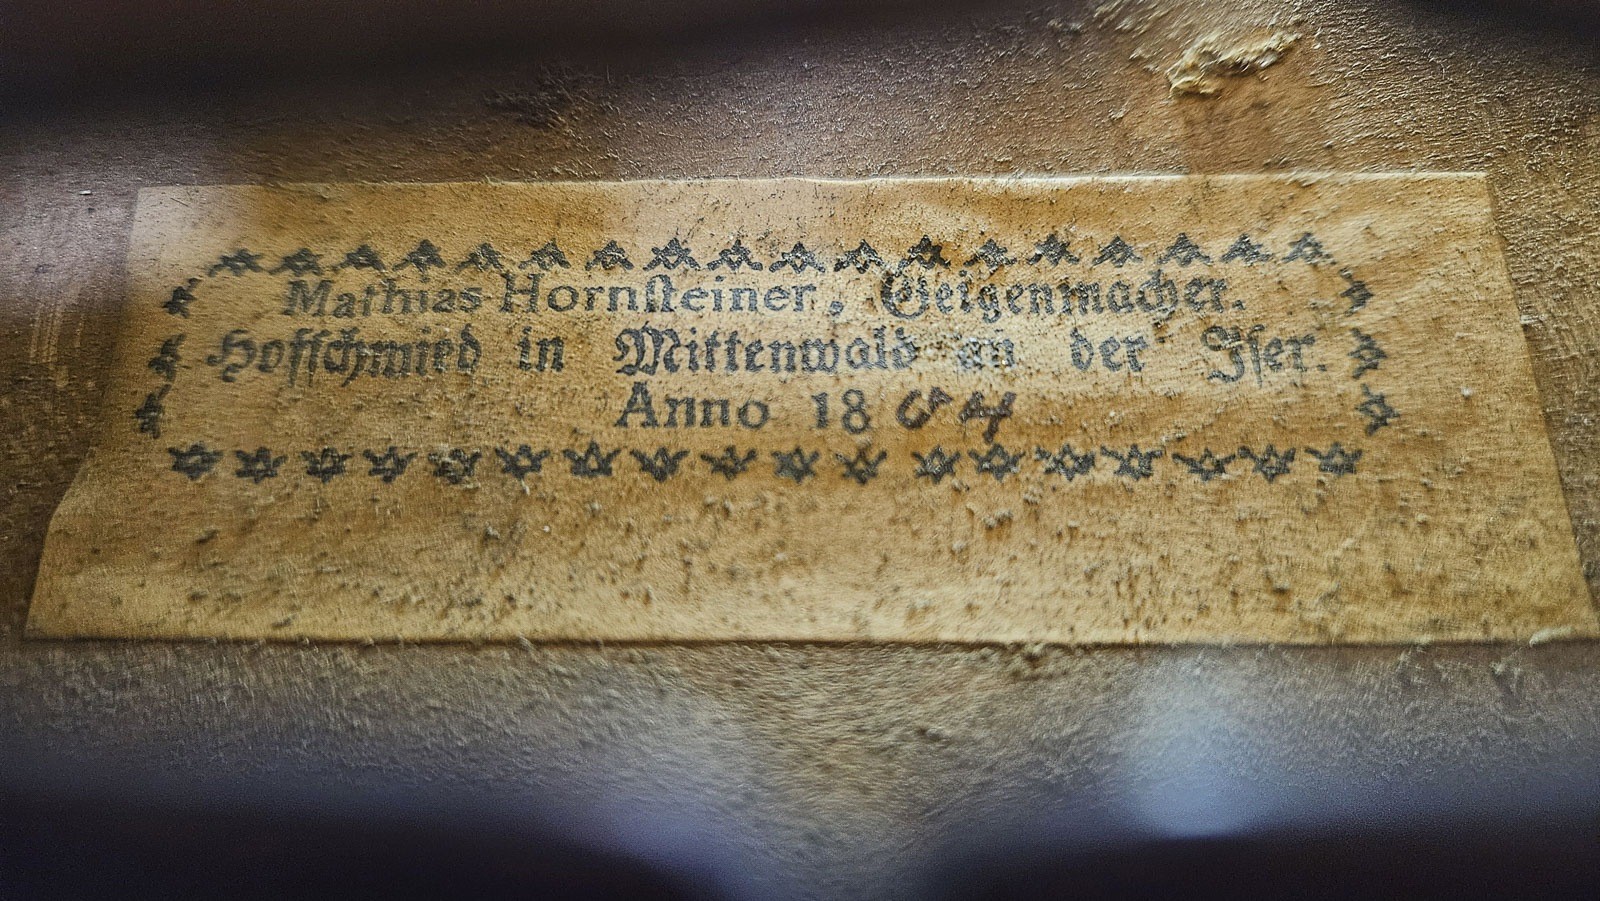 Mathias Hornſteiner, Geigenmacher.
Hofſchmied in Mittenwald an der Iſer.
Anno 1804